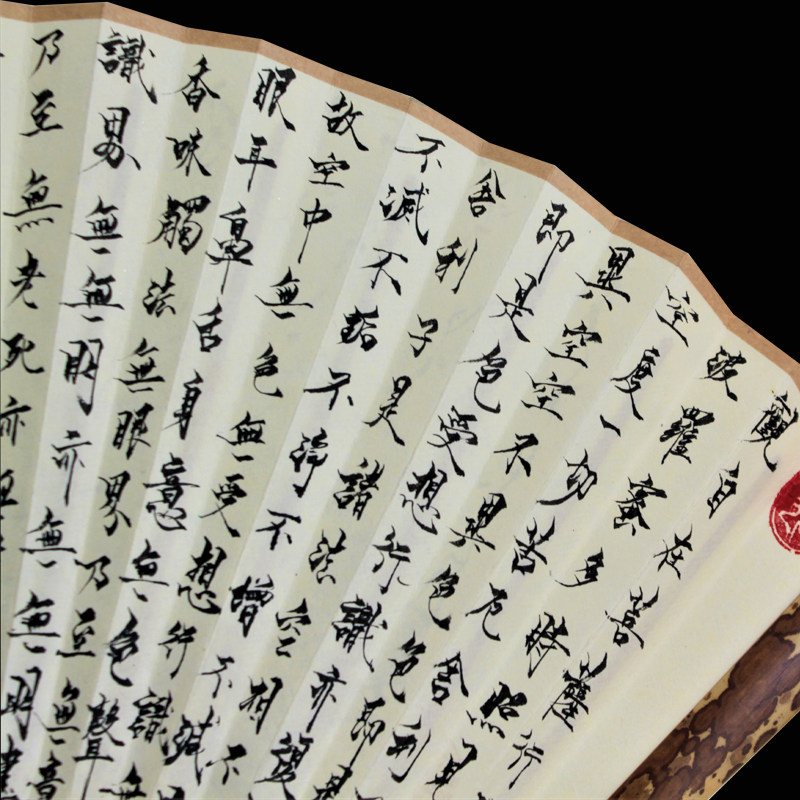 觀自在菩薩行
波羅蜜多時照見
空度一切苦厄舍利
異空空不異色色即是
即是色受想行識亦復
舍利子是諸法空相不
不滅不垢不淨不增不減
故空中無色無受想行識無
眼耳鼻舌身意無色聲
香味觸法無眼界乃至無意
識界無無明亦無無明盡
乃至無老死亦無